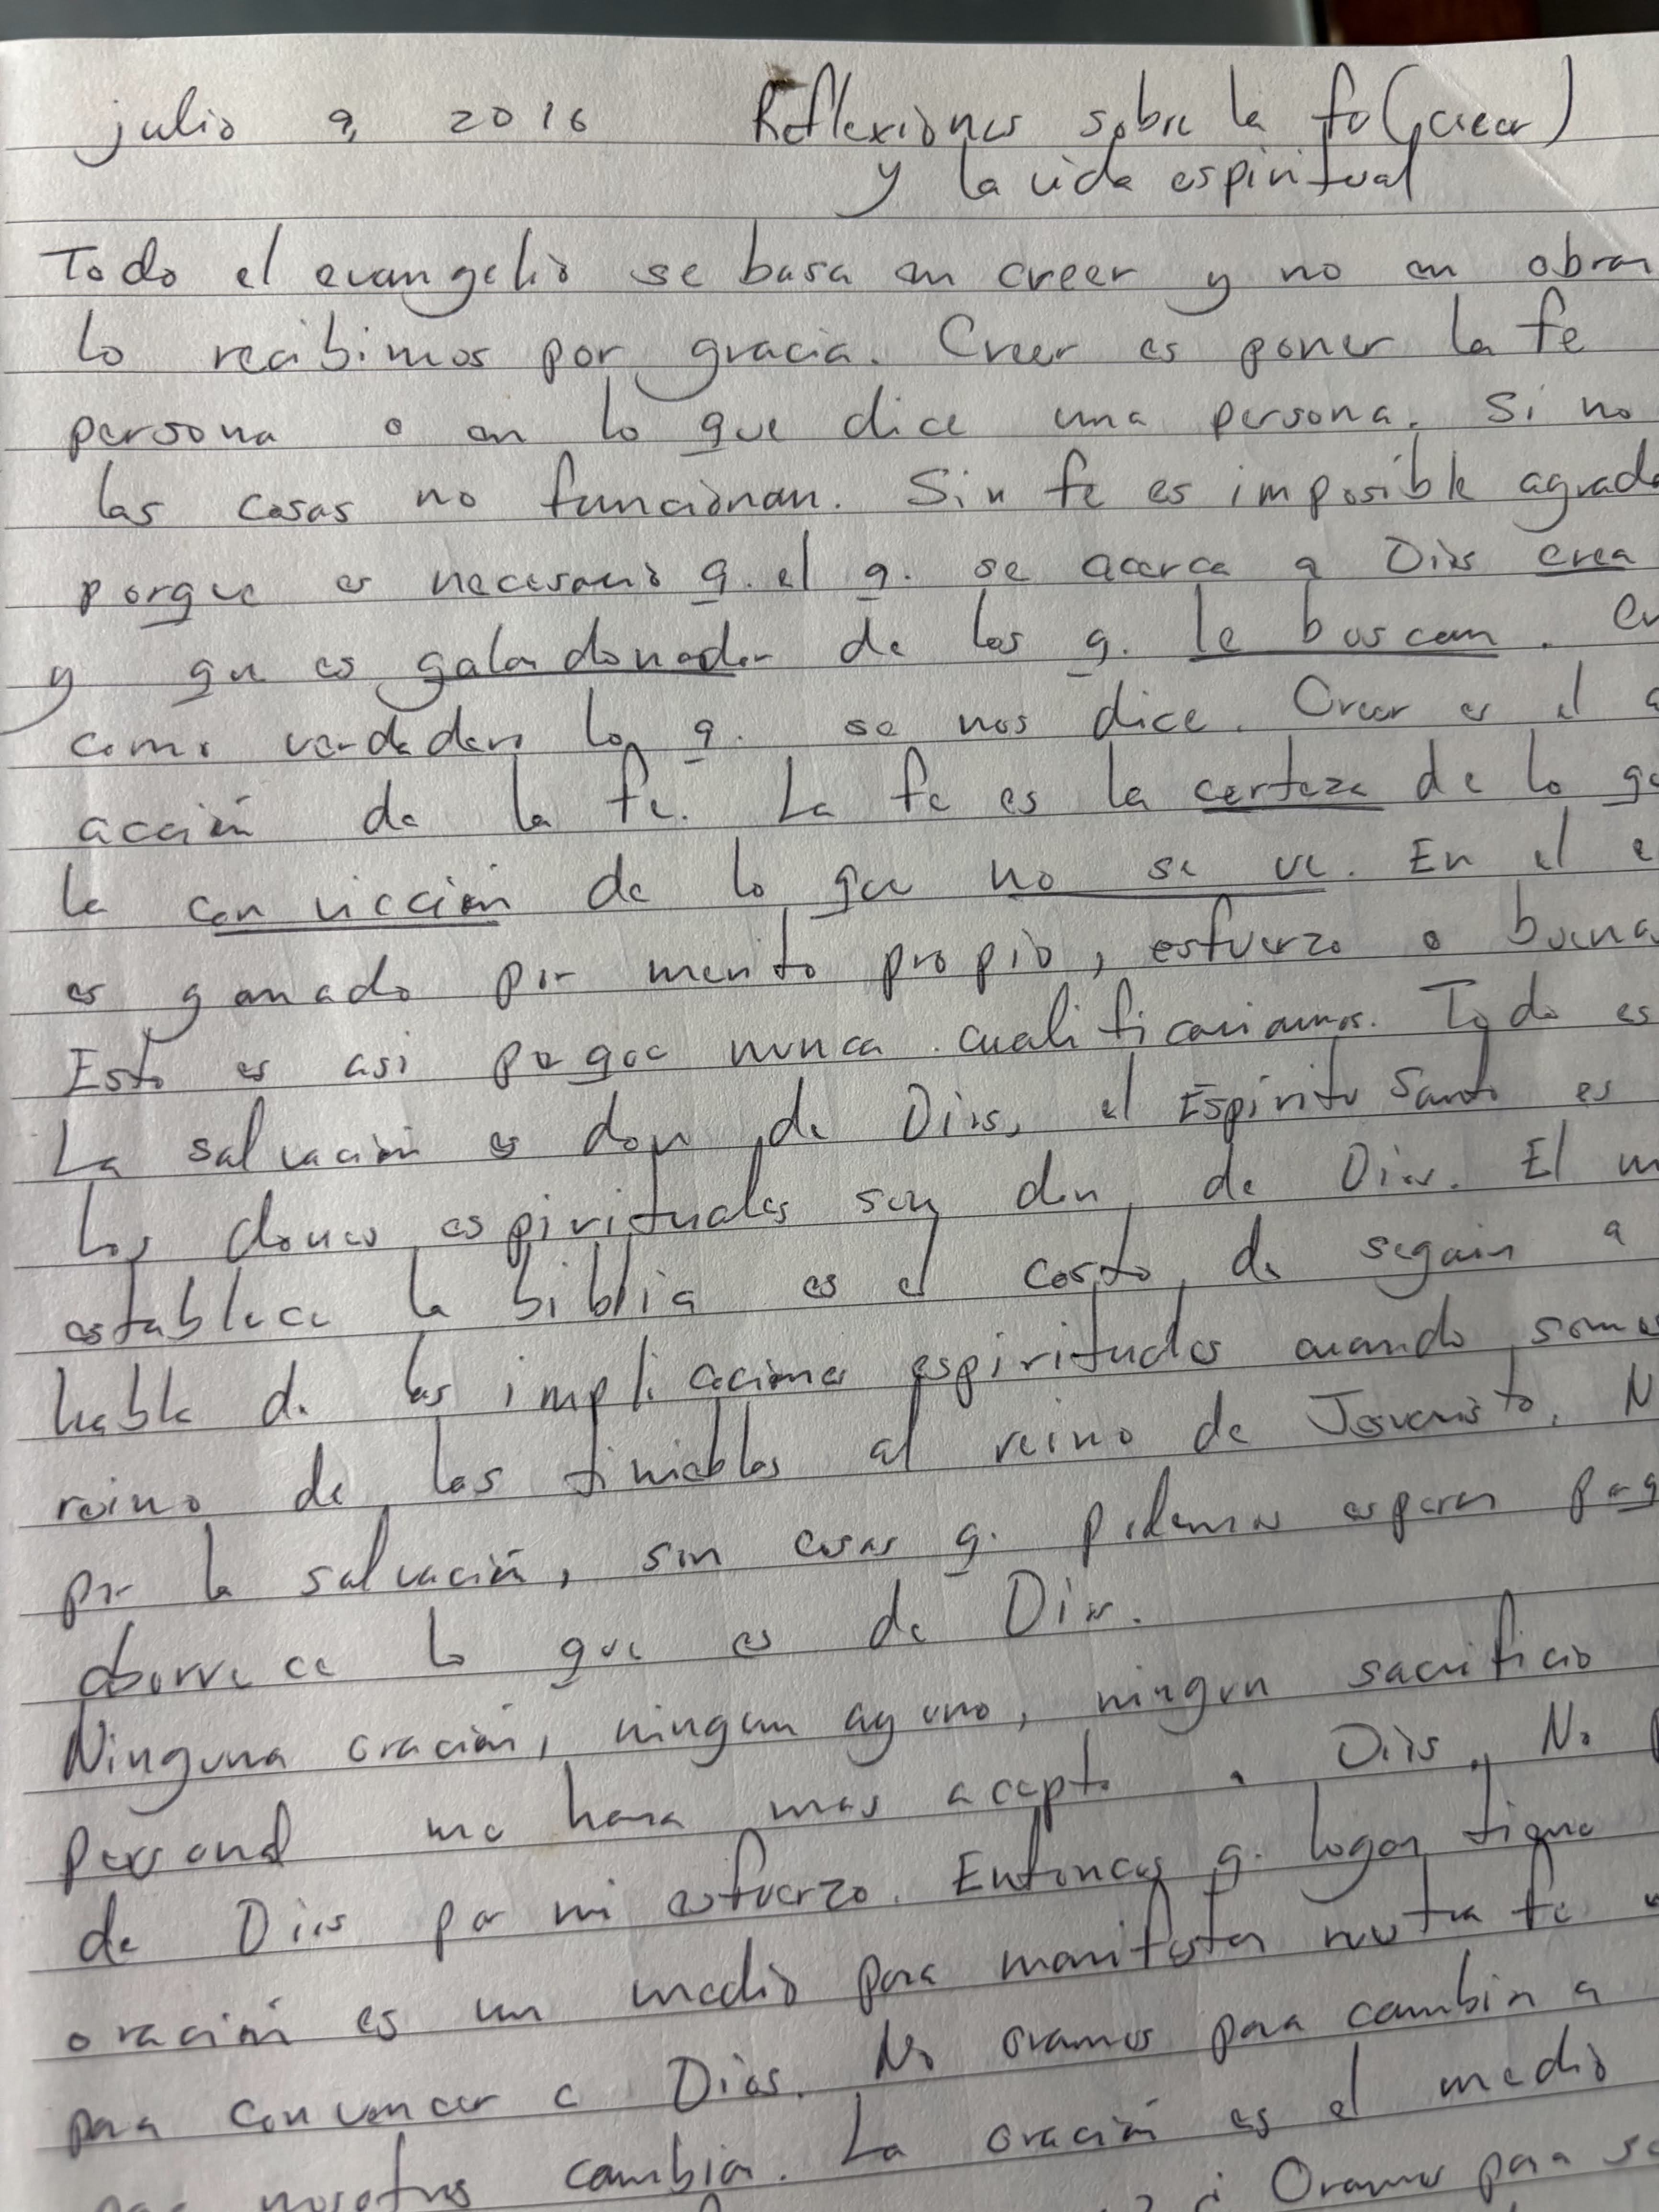 julio 9, 2016 Reflexiones sobre la fe (creer)
y la vida espiritual
Todo el evangelio se basa en creer y no en obras
lo recibimos por gracia. Creer es poner la fe
persona o en lo que dice una persona. Si no
las cosas no funcionan. Sin fe es imposible agrada
porque es necesario q. el q. se acerca a Dios crea
y que es galardonador de los q. le buscan.
como verdadero lo q. se nos dice. Creer es el
acción de la fe. La fe es la certeza de lo
la convicción de lo que no se ve. En el
es ganado por merito propio, esfuerzo o buena
Esto es asi porque nunca cualificariamos. Todo es
La salvación es don de Dios, el Espíritu Santo es
Los dones espirituales son don de Dios. El
establece la biblia es el costo de seguir a
habla de las implicaciones espirituales cuando somos
reino de las tinieblas al reino de Jesucristo. N
por la salvación, son cosas q. podemos esperar
aborrece lo que es de Dios.
Ninguna oración, ningun ayuno, ningun sacrificio
personal me hara mas acepto a Dios. No
de Dios por mi esfuerzo. Entonces q. lugar tiene
oración es un medio para manifestar nuestra fe
para convencer a Dios. No oramos para cambiar a
nosotros cambiar. La oración es el medio
¿ Oramos para